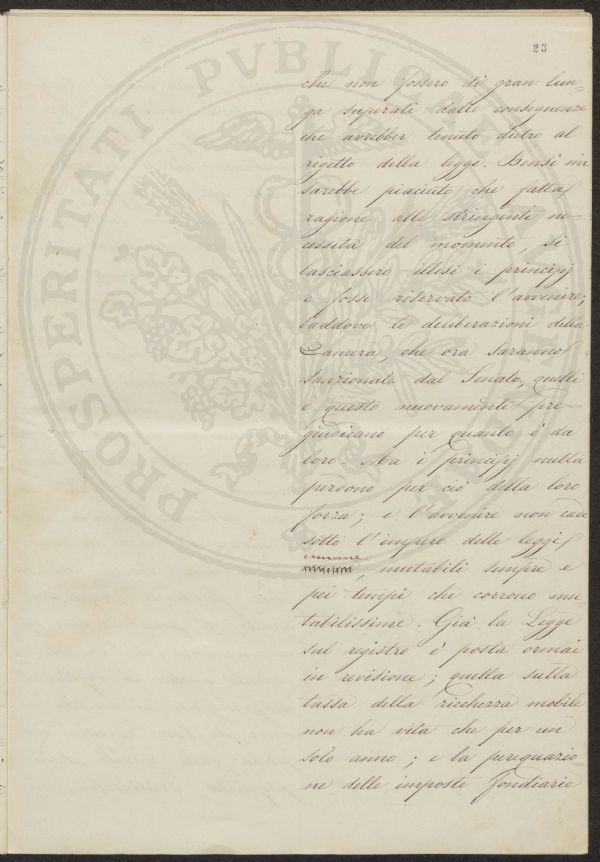 23
che non fossero di gran lun-
ga superati dalle conseguenze
che avrebber tenuto dietro al
rigetto della legge. Bensì mi
sarebbe piaciuto che fatta
ragione alle stringenti ne-
cessità del momento, si
lasciassero illesi i principj
e fosse riservato l'avvenire;
laddove le deliberazioni della
Camera, che ora saranno
sanzionate dal Senato, quelli
e questo nuovamente pre-
giudicano per quanto è da
loro. Ma i principj nulla
perdono per ciò della loro
forza; e l'avvenire non cade
sotto l'impero delle leggi
umane
, mutabili sempre e
pei tempi che corrono mu-
tabilissime. Già la Legge
sul registro è posta ormai
in revisione; quella sulla
tassa della ricchezza mobile
non ha vita che per un
solo anno; e la perequazio-
ne delle imposte fondiarie
PROSPERITATI PVBLICAE